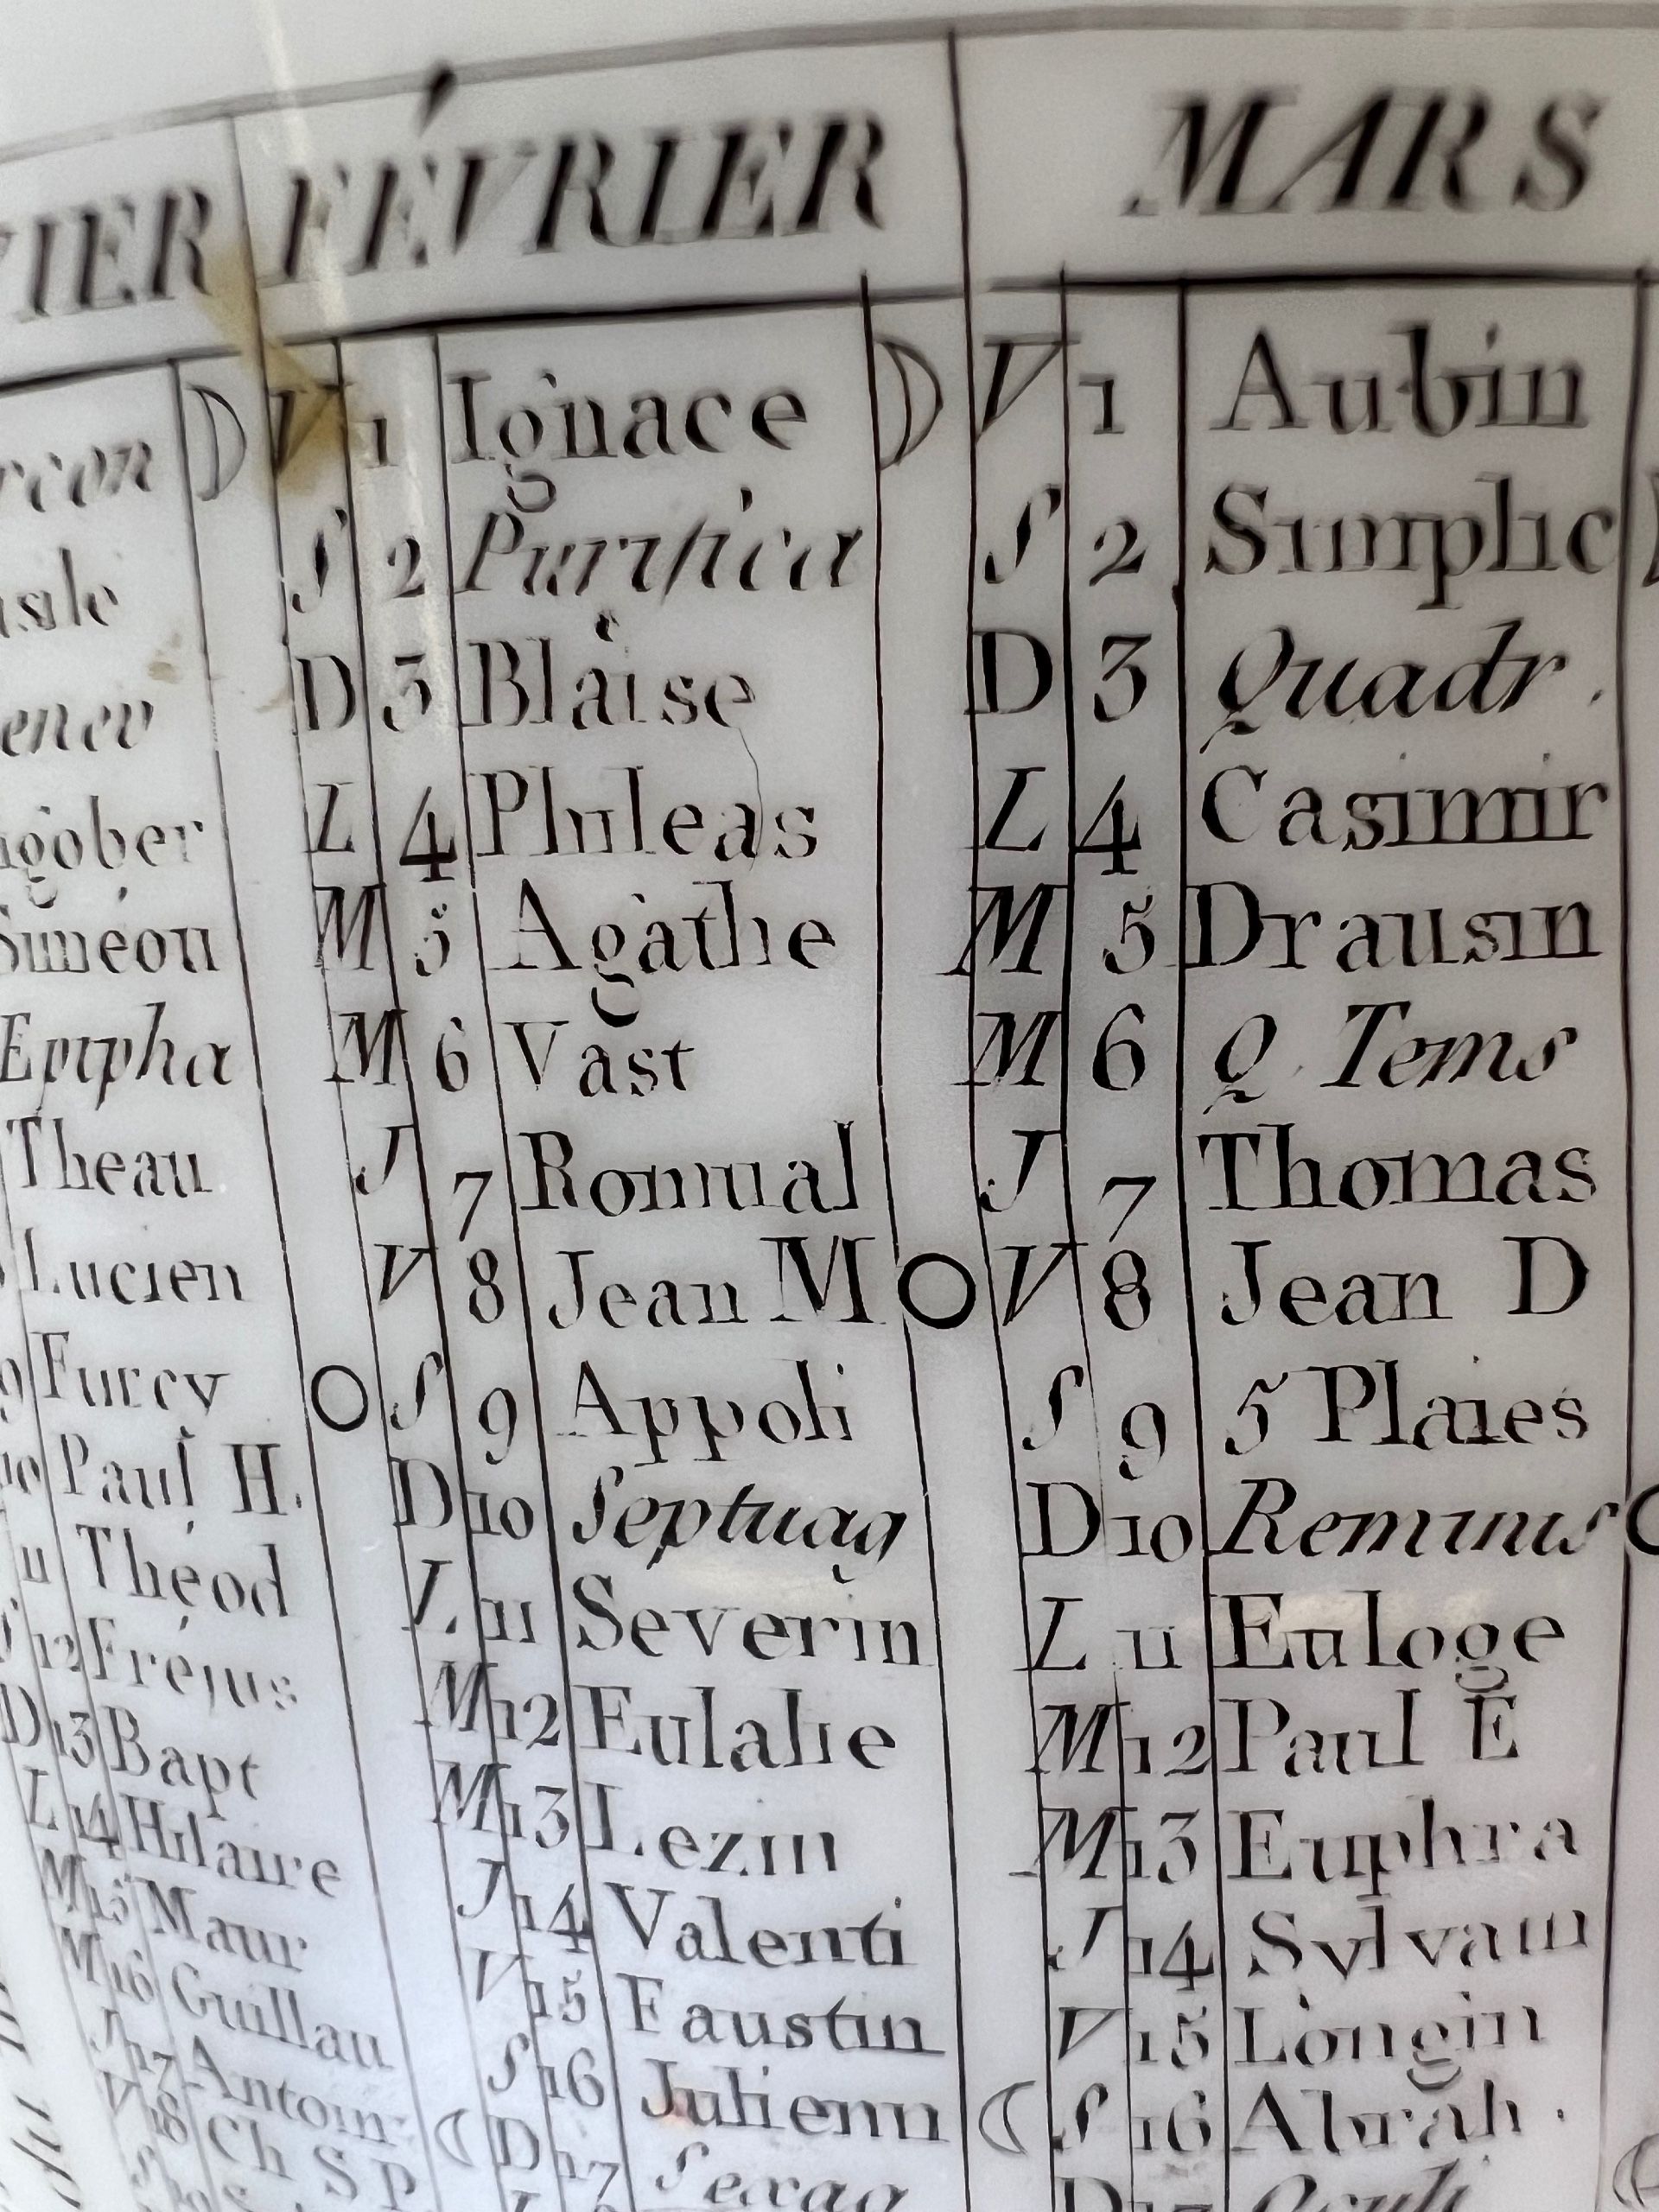 FÉVRIER
MARS
V 1 Ignace
S 2 Purifica
D 3 Blaise
L 4 Phileas
M 5 Agathe
M 6 Vast
J 7 Romual
V 8 Jean M
S 9 Appoli
D 10 Septuag
L 11 Severin
M 12 Eulalie
M 13 Lezin
J 14 Valenti
V 15 Faustin
S 16 Julienn
D 17 Sexag
V 1 Aubin
S 2 Simplic
D 3 Quadr.
L 4 Casimir
M 5 Drausin
M 6 Q Tems
J 7 Thomas
V 8 Jean D
S 9 5 Plaies
D 10 Reminis
L 11 Euloge
M 12 Paul E
M 13 Euphra
J 14 Sylvain
V 15 Longin
S 16 Abrah.
Siméon
Theau
Lucien
9 Furcy
10 Paul H.
11 Théod
S 12 Fréjus
D 13 Bapt
L 14 Hilaire
M 15 Maur
M 16 Guillau
J 17 Antoin
V 18 Ch S P